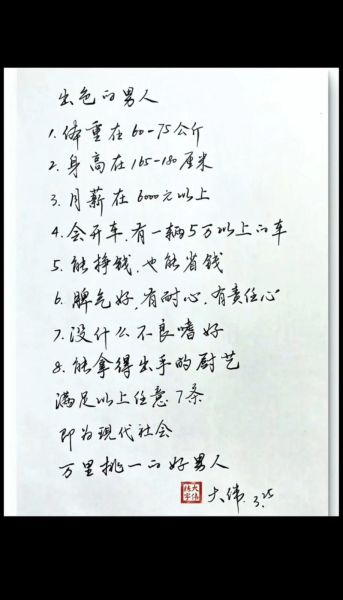 出色的男人
1.体重在60-75公斤
2.身高在165-180厘米
3.月薪在6000元以上
4.会开车,有一辆5万以上的车
5.能挣钱,也能省钱
6.脾气好,有耐心,有责任心
7.没什么不良嗜好
8.能拿得出手的厨艺
满足以上任意7条
即为现代社会
万里挑一的好男人
大伟.3.25